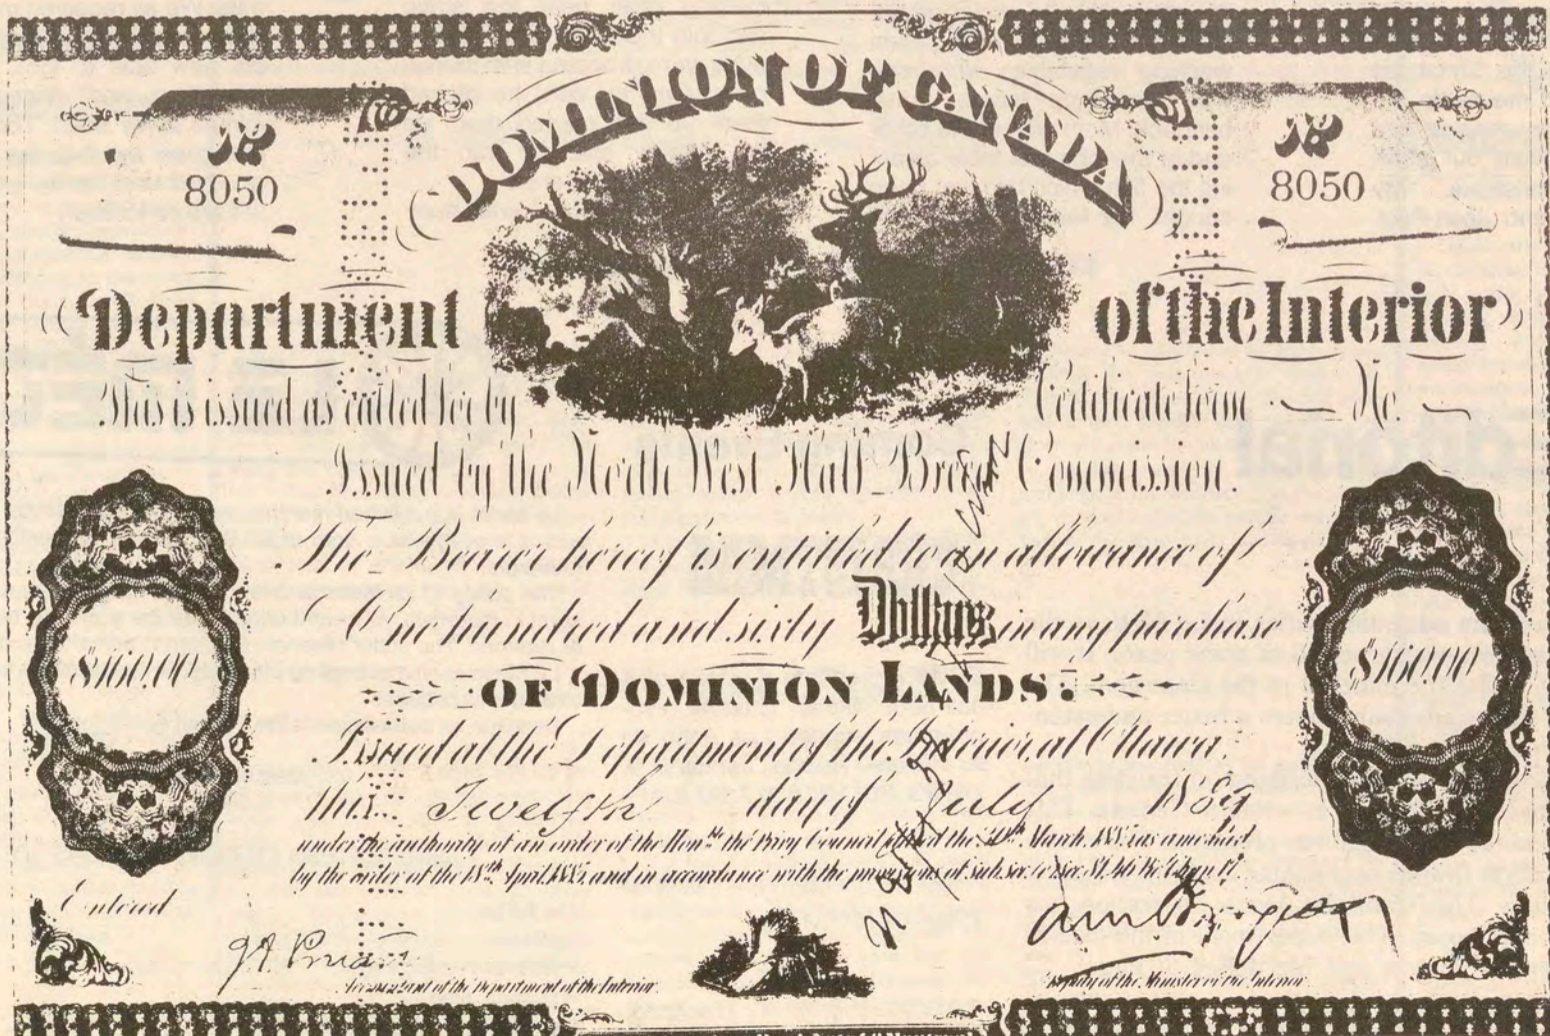 DOMINION OF CANADA
No
8050
No
8050
Department of the Interior
This is issued as called for by Certificate form — No. —
Issued by the North West Half Breed Commission.
The Bearer hereof is entitled to an allowance of
$160.00
One hundred and sixty Dollars in any purchase
$160.00
OF DOMINION LANDS.
Issued at the Department of the Interior, at Ottawa,
this Twelfth day of July 1889
under the authority of an order of the Honble the Privy Council dated the 30th March, 1885, as amended
by the order of the 18th April, 1885, and in accordance with the provisions of sub sec. (e) Sec. 81, 46 Vic. Chap. 17.
Entered
Accountant of the Department of the Interior.
Deputy of the Minister of the Interior